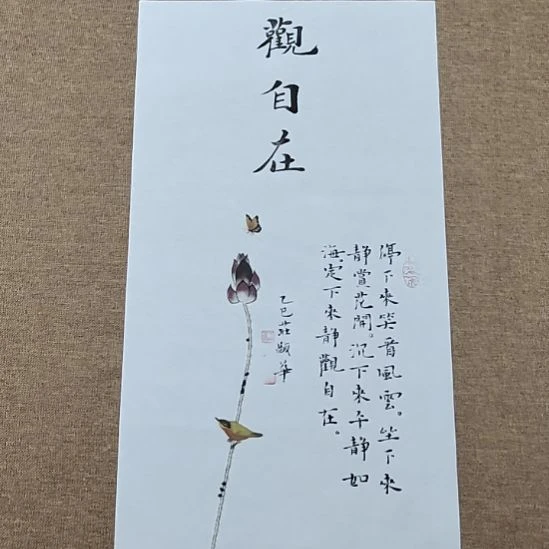 觀自在
停下來笑看風雲。坐下來
静賞花開。沉下來平静如
海。定下來静觀自在。
乙巳莊顯華